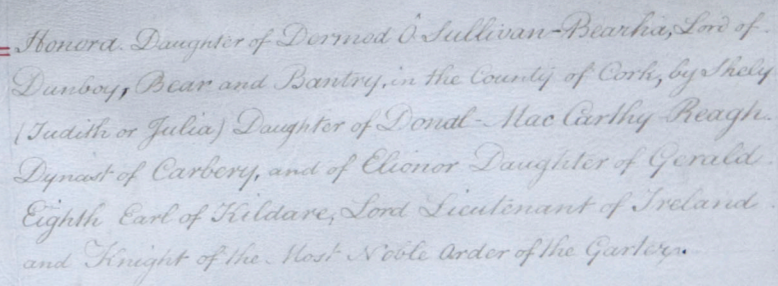 = Honora. Daughter of Dermod O'Sullivan-Bearha, Lord of
Dunboy, Bear and Bantry, in the County of Cork, by Shely
(Judith or Julia) Daughter of Donal-Mac Carthy Reagh.
Dynast of Carbery, and of Elionor Daughter of Gerald
Eighth Earl of Kildare, Lord Lieutenant of Ireland
and Knight of the Most Noble Order of the Garter.